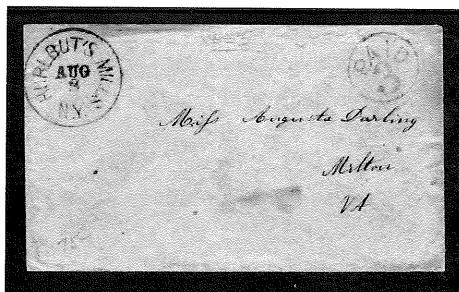 HURLBUT'S MILLS
AUG
2
N.Y.
PAID
3
Miss Augusta Darling
Milton
VA